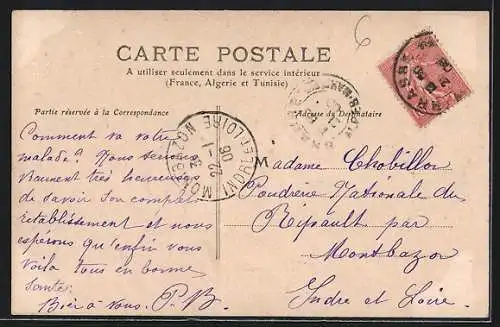 6
CARTE POSTALE
A utiliser seulement dans le service intérieur
(France, Algerie et Tunisie)
Partie réservée à la Correspondance
Adresse du Destinataire
Comment va votre
malade? Nous serions
vraiment très heureuses
de savoir son complet
établissement et nous
espérons qu'enfin vous
voila tous en bonne
santé.
Bien à vous. P. B.
M
Madame Chobillon
Poudrerie Nationale du
Ripault par
Montbazon
Indre et Loire.
INDRE-ET-LOIRE